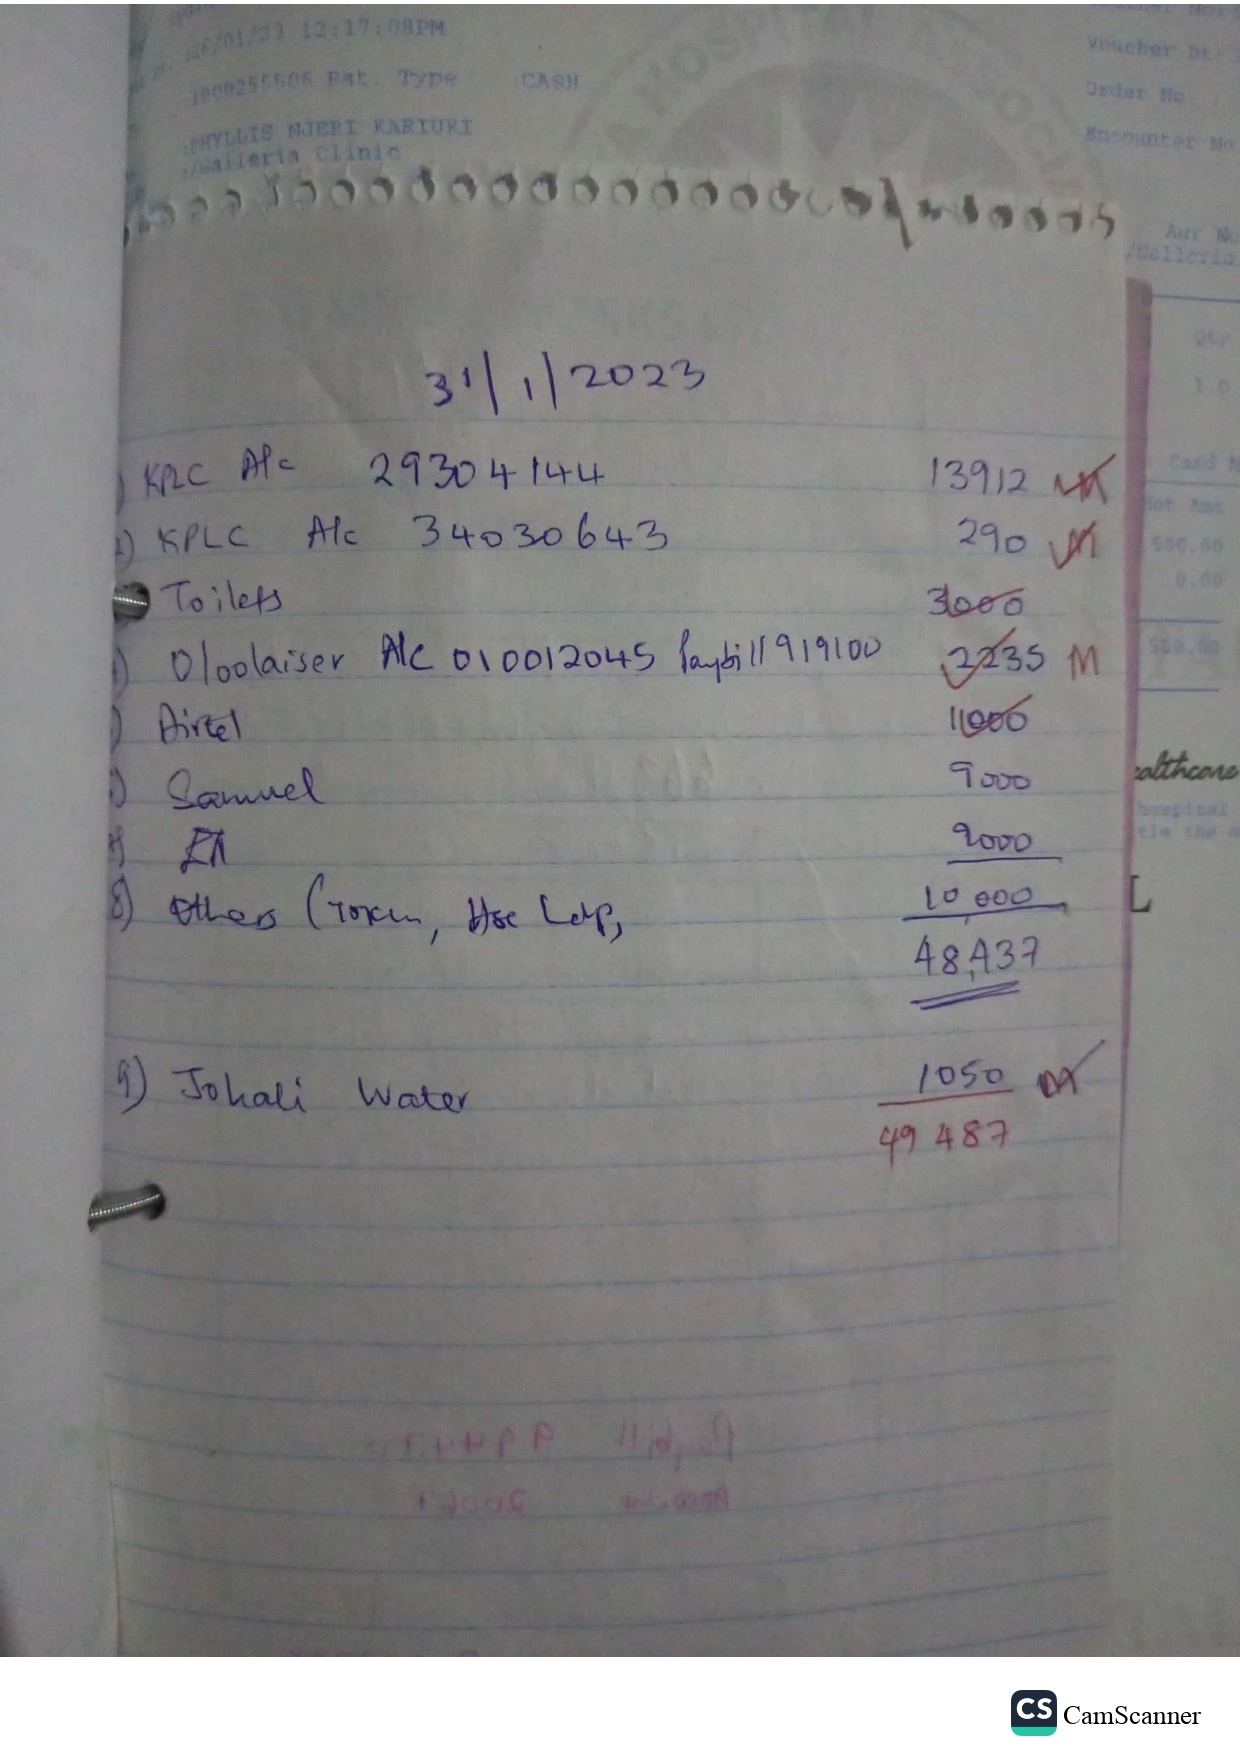 26/01/23 12:17:08PM
Voucher Dt:
:1000255506 Pat. Type :CASH
Order No
:PHYLLIS NJERI KARIUKI
Encounter No
:/Galleria Clinic
/Galleria
Qty
31/1/2023
1.0
) KPLC A/c 29304144 13912 M
Card
Net Amt
2) KPLC A/c 34030643 290 M
500.00
0.00
Toilets 3000
) Oloolaiser A/C 010012045 Paybill 919100 2235 M
500.00
) Airtel 11000
) Samuel 9000
althcare
hospital
9000
8) Others (Token, Hse 10,000
48,437
9) Johali Water 1050 M
49 487
CS CamScanner